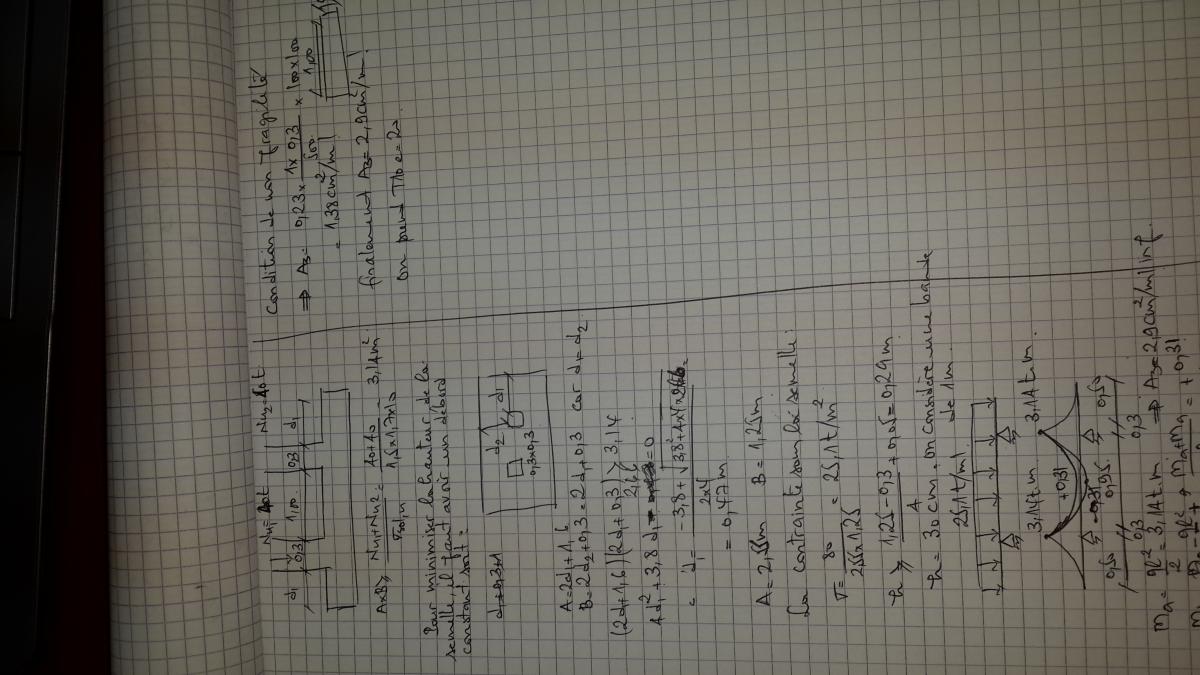 Nu1= 40t Nu2= 40t
d1 0,3 1,00 0,3 d1
AxB ≥ Nu1+Nu2 / σsol,u = 40+40 / 1,5x1,7x10 = 3,14 m²
Pour minimiser la hauteur de la
semelle, il faut avoir un débord
constant soit :
d2
d1
0,3x0,3
A = 2d1+1,6
B = 2d2+0,3 = 2d1+0,3 car d1=d2
(2d1+1,6)(2d1+0,3) ≥ 3,14
4d1²+3,8d1 - 2,66 = 0
d1 = -3,8+√3,8²+4x4x2,66 / 2x4
= 0,47m
A = 2,55m B = 1,25m
La contrainte sous la semelle :
σ = 80 / 2,55x1,25 = 25,1 t/m²
h ≥ 1,25-0,3 / 4 + 0,05 = 0,29m
h = 30cm, on considère une bande
de 1m.
25,1 t/ml
3,14t.m 3,14t.m.
+0,31
-0,31
0,50 0,3 0,95 0,3 0,50
Ma = ql²/2 = 3,14t.m ⇒ A3 = 2,9cm²/ml inf.
Condition de non fragilité
⇒ A3 = 0,23x 1x0,3 / 500 x 100x100
= 1,38cm²/m
1,00
finalement A3 = 2,9cm²/m
on prend T10 e=20